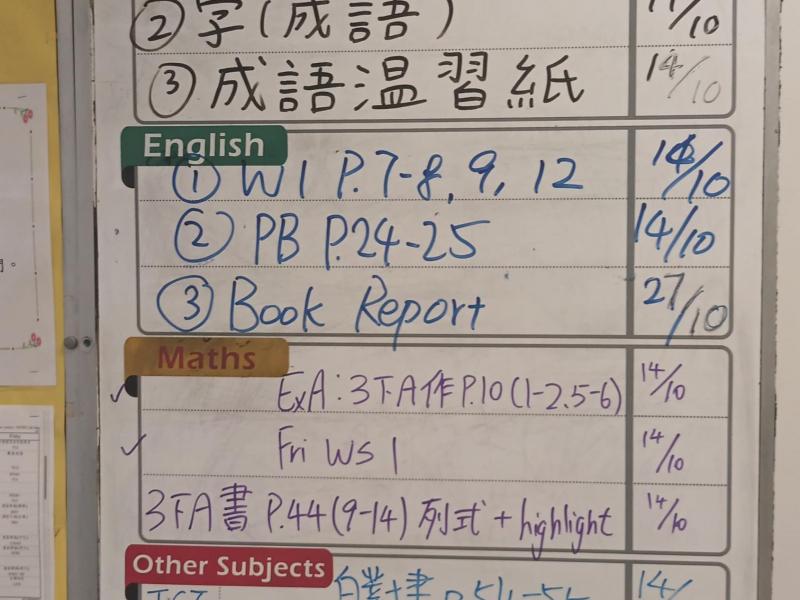 ② 字(成語) 11/10
③ 成語温習紙 14/10
English
① W1 P.7-8, 9, 12 14/10
② PB P.24-25 14/10
③ Book Report 27/10
Maths
ExA: 3下A作P.10(1-2,5-6) 14/10
Fri WS 1 14/10
3下A書 P.44(9-14) 列式 + highlight 14/10
Other Subjects
14/